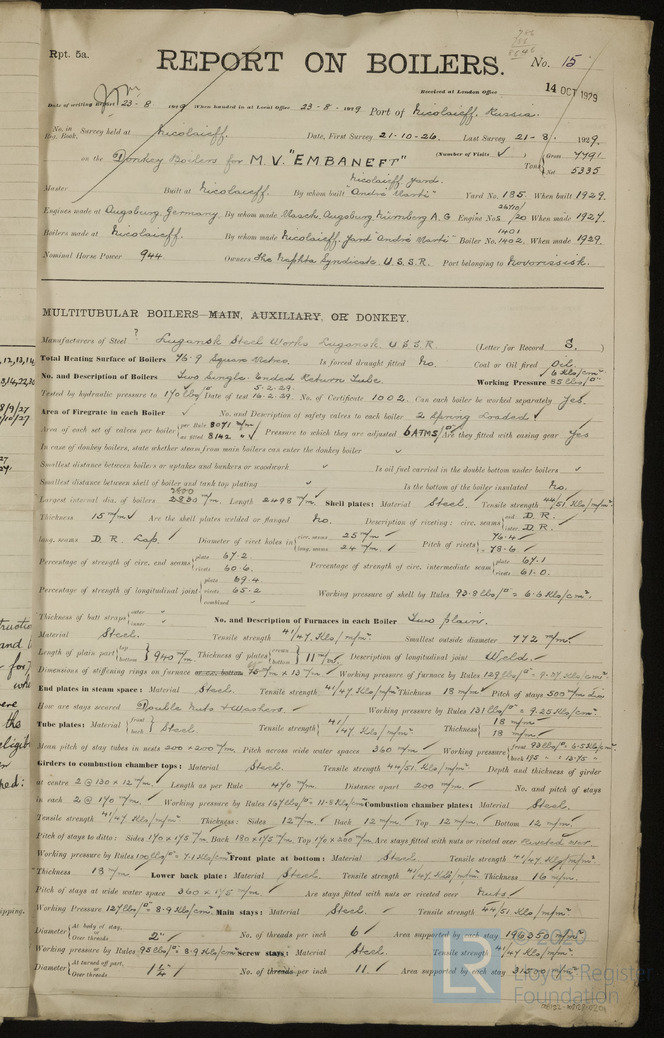 Rpt. 5a.
REPORT ON BOILERS.
No. 15
Received at London Office 14 OCT 1929
Date of writing Report 23-8 1929 When handed in at Local Office 23-8-1929 Port of Nicolaieff, Russia.
No. in Reg. Book. Survey held at Nicolaieff. Date, First Survey 21-10-26. Last Survey 21-8 1929.
on the Donkey Boilers for M.V. "EMBANEFT" (Number of Visits ✓ ) Tons Gross 7791 Net 5335
Master Built at Nicolaieff. By whom built Nicolaieff yard. "Andre Marti" Yard No. 135. When built 1929.
Engines made at Augsburg, Germany By whom made Masch. Augsburg, Nürnberg A.G Engine No. /20 When made 1927.
Boilers made at Nicolaieff. By whom made Nicolaieff Yard "Andre Marti" Boiler No. 1401 1402. When made 1929.
Nominal Horse Power 944. Owners The Naphta Syndicate. U.S.S.R. Port belonging to Novorissisk.
MULTITUBULAR BOILERS—MAIN, AUXILIARY, OR DONKEY.
Manufacturers of Steel ? Lugansk Steel Works Lugansk. U.S.S.R. (Letter for Record S.)
Total Heating Surface of Boilers 76.9 Square Metres. Is forced draught fitted No. Coal or Oil fired Oil.
No. and Description of Boilers Two Single Ended Return Tube. Working Pressure 6 Klo/cm² 85 lbs/□"
Tested by hydraulic pressure to 170 lbs/□" Date of test 5.2.29. 16.2.29. No. of Certificate 1002. Can each boiler be worked separately yes.
Area of Firegrate in each Boiler ✓ No. and Description of safety valves to each boiler 2 Spring Loaded ✓
Area of each set of valves per boiler per Rule 8071 m/m as fitted 8142 " ✓ Pressure to which they are adjusted 6 ATMS/□" Are they fitted with easing gear yes
In case of donkey boilers, state whether steam from main boilers can enter the donkey boiler ✓
Smallest distance between boilers or uptakes and bunkers or woodwork ✓ Is oil fuel carried in the double bottom under boilers ✓
Smallest distance between shell of boiler and tank top plating ✓ Is the bottom of the boiler insulated No.
Largest internal dia. of boilers m/m. Length 2498 m/m. ✓ Shell plates: Material Steel. Tensile strength 44/51 Klo/m/m².
Thickness 15 m/m ✓ Are the shell plates welded or flanged No. Description of riveting: circ. seams end D.R. inter. D.R.
long. seams D.R. Lap. ✓ Diameter of rivet holes in circ. seams 25 m/m ✓ long. seams 24 m/m ✓ Pitch of rivets 76.4 78.6 ✓
Percentage of strength of circ. end seams plate 67.2 rivets 60.6 Percentage of strength of circ. intermediate seam plate 67.1 rivets 61.0.
Percentage of strength of longitudinal joint plate 69.4 rivets 65.2 combined ✓ Working pressure of shell by Rules 93.8 lbs/□" = 6.6 Klo/cm².
Thickness of butt straps outer ✓ inner ✓ No. and Description of Furnaces in each Boiler Two plain.
Material Steel. Tensile strength 41/47 Klo/m/m². Smallest outside diameter 772 m/m.
Length of plain part top bottom 940 m/m. Thickness of plates crown bottom 11 m/m ✓ Description of longitudinal joint Weld.
Dimensions of stiffening rings on furnace m/m × 13 m/m ✓ Working pressure of furnace by Rules 129 lbs/□" = 9.07 Klo/cm².
End plates in steam space: Material Steel. Tensile strength 41/47 Klo/m/m² Thickness 18 m/m ✓ Pitch of stays 500 m/m
How are stays secured Double Nuts & Washers. Working pressure by Rules 131 lbs/□" = 9.25 Klo/cm².
Tube plates: Material front back Steel. Tensile strength 41/47 Klo/m/m² Thickness 18 m/m 18 m/m
Mean pitch of stay tubes in nests 200 × 200 m/m. Pitch across wide water spaces 360 m/m ✓ Working pressure front back
Girders to combustion chamber tops: Material Steel. Tensile strength 44/51 Klo/m/m² Depth and thickness of girder
at centre 2 @ 130 × 12 m/m. Length as per Rule 470 m/m. Distance apart 200 m/m. ✓ No. and pitch of stays
in each 2 @ 170 m/m. ✓ Working pressure by Rules 167 lbs/□" = 11.8 Klo/cm² Combustion chamber plates: Material Steel.
Tensile strength 41/47 Klo/m/m² Thickness: Sides 12 m/m ✓ Back 12 m/m ✓ Top 12 m/m ✓ Bottom 12 m/m ✓
Pitch of stays to ditto: Sides 170 × 175 m/m Back 180 × 175 m/m. Top 170 × 200 m/m. Are stays fitted with nuts or riveted over Riveted over
Working pressure by Rules 100 lbs/□" = 7.1 Klo/cm² Front plate at bottom: Material Steel. Tensile strength 41/47 Klo/m/m²
Thickness 18 m/m ✓ Lower back plate: Material Steel. Tensile strength 41/47 Klo/m/m². Thickness 16 m/m.
Pitch of stays at wide water space 360 × 175 m/m. Are stays fitted with nuts or riveted over Nuts ✓
Working Pressure 127 lbs/□" = 8.9 Klo/cm². Main stays: Material Steel. ✓ Tensile strength 44/51 Klo/m/m²
Diameter At body of stay, or Over threads 2" ✓ No. of threads per inch 6 ✓ Area supported by each stay 196350 m/m²
Working pressure by Rules 95 lbs/□" = 8.9 Klo/cm² Screw stays: Material Steel. Tensile strength 41/47 Klo/m/m²
Diameter At turned off part, or Over threads 1¼" ✓ No. of threads per inch 11 ✓ Area supported by each stay 31500 m/m²
© 2020
LR
Lloyd's Register
Foundation